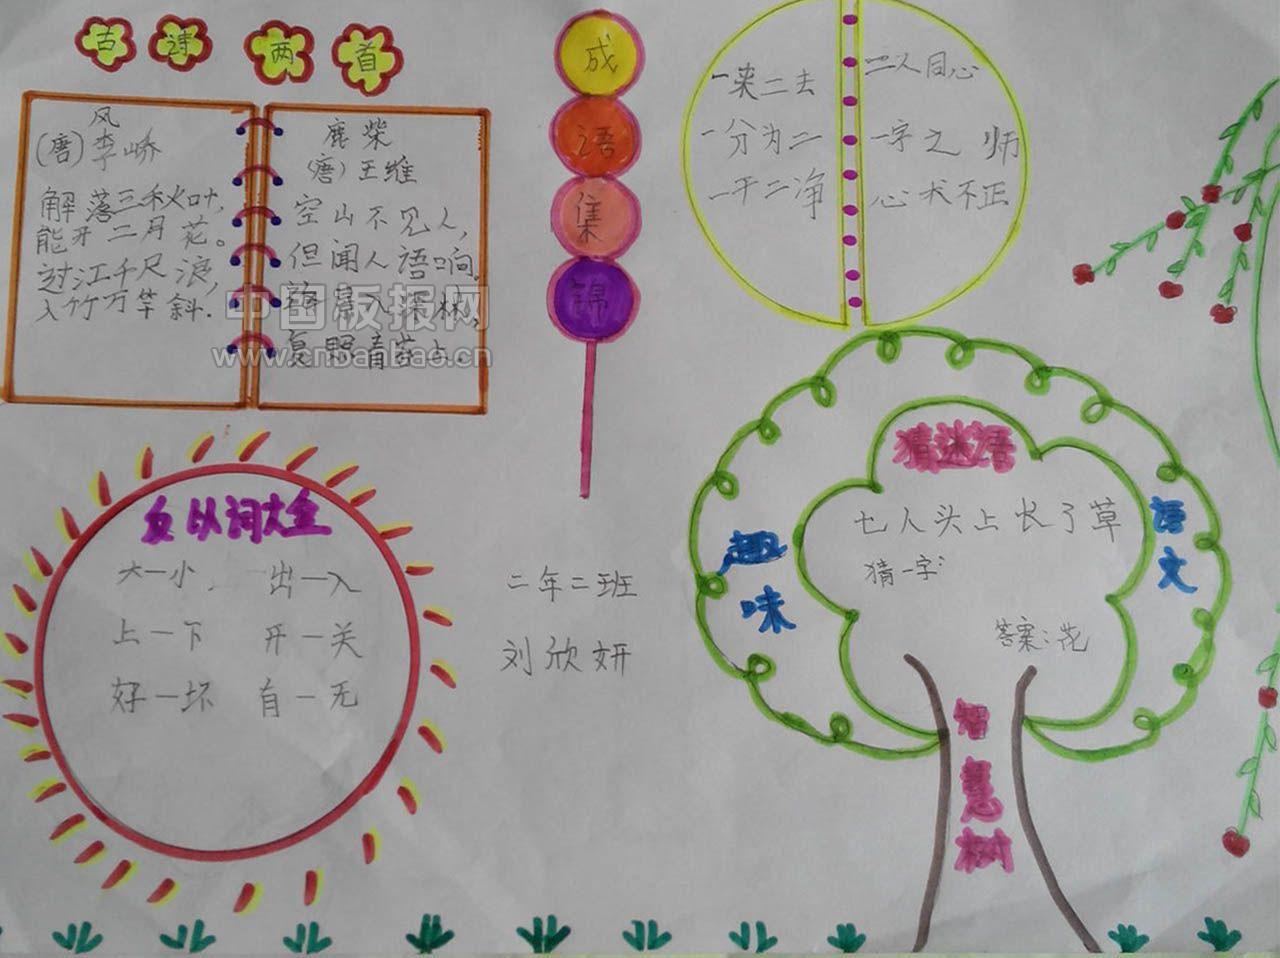 古诗两首
风
(唐)李峤
解落三秋叶,
能开二月花。
过江千尺浪,
入竹万竿斜.
鹿柴
(唐)王维
空山不见人,
但闻人语响.
景入深林,
复照青苔上.
中国板报网
www.cnbanbao.cn
成
语
集
锦
一来二去
一分为二
一干二净
二人同心
一字之师
心术不正
词大全
大一小
出一入
上一下
开一关
好一坏
自一无
二年二班
刘欣妍
猜迷语
七人头上长了草
猜一字:
答案:花
趣味
语文
智慧树